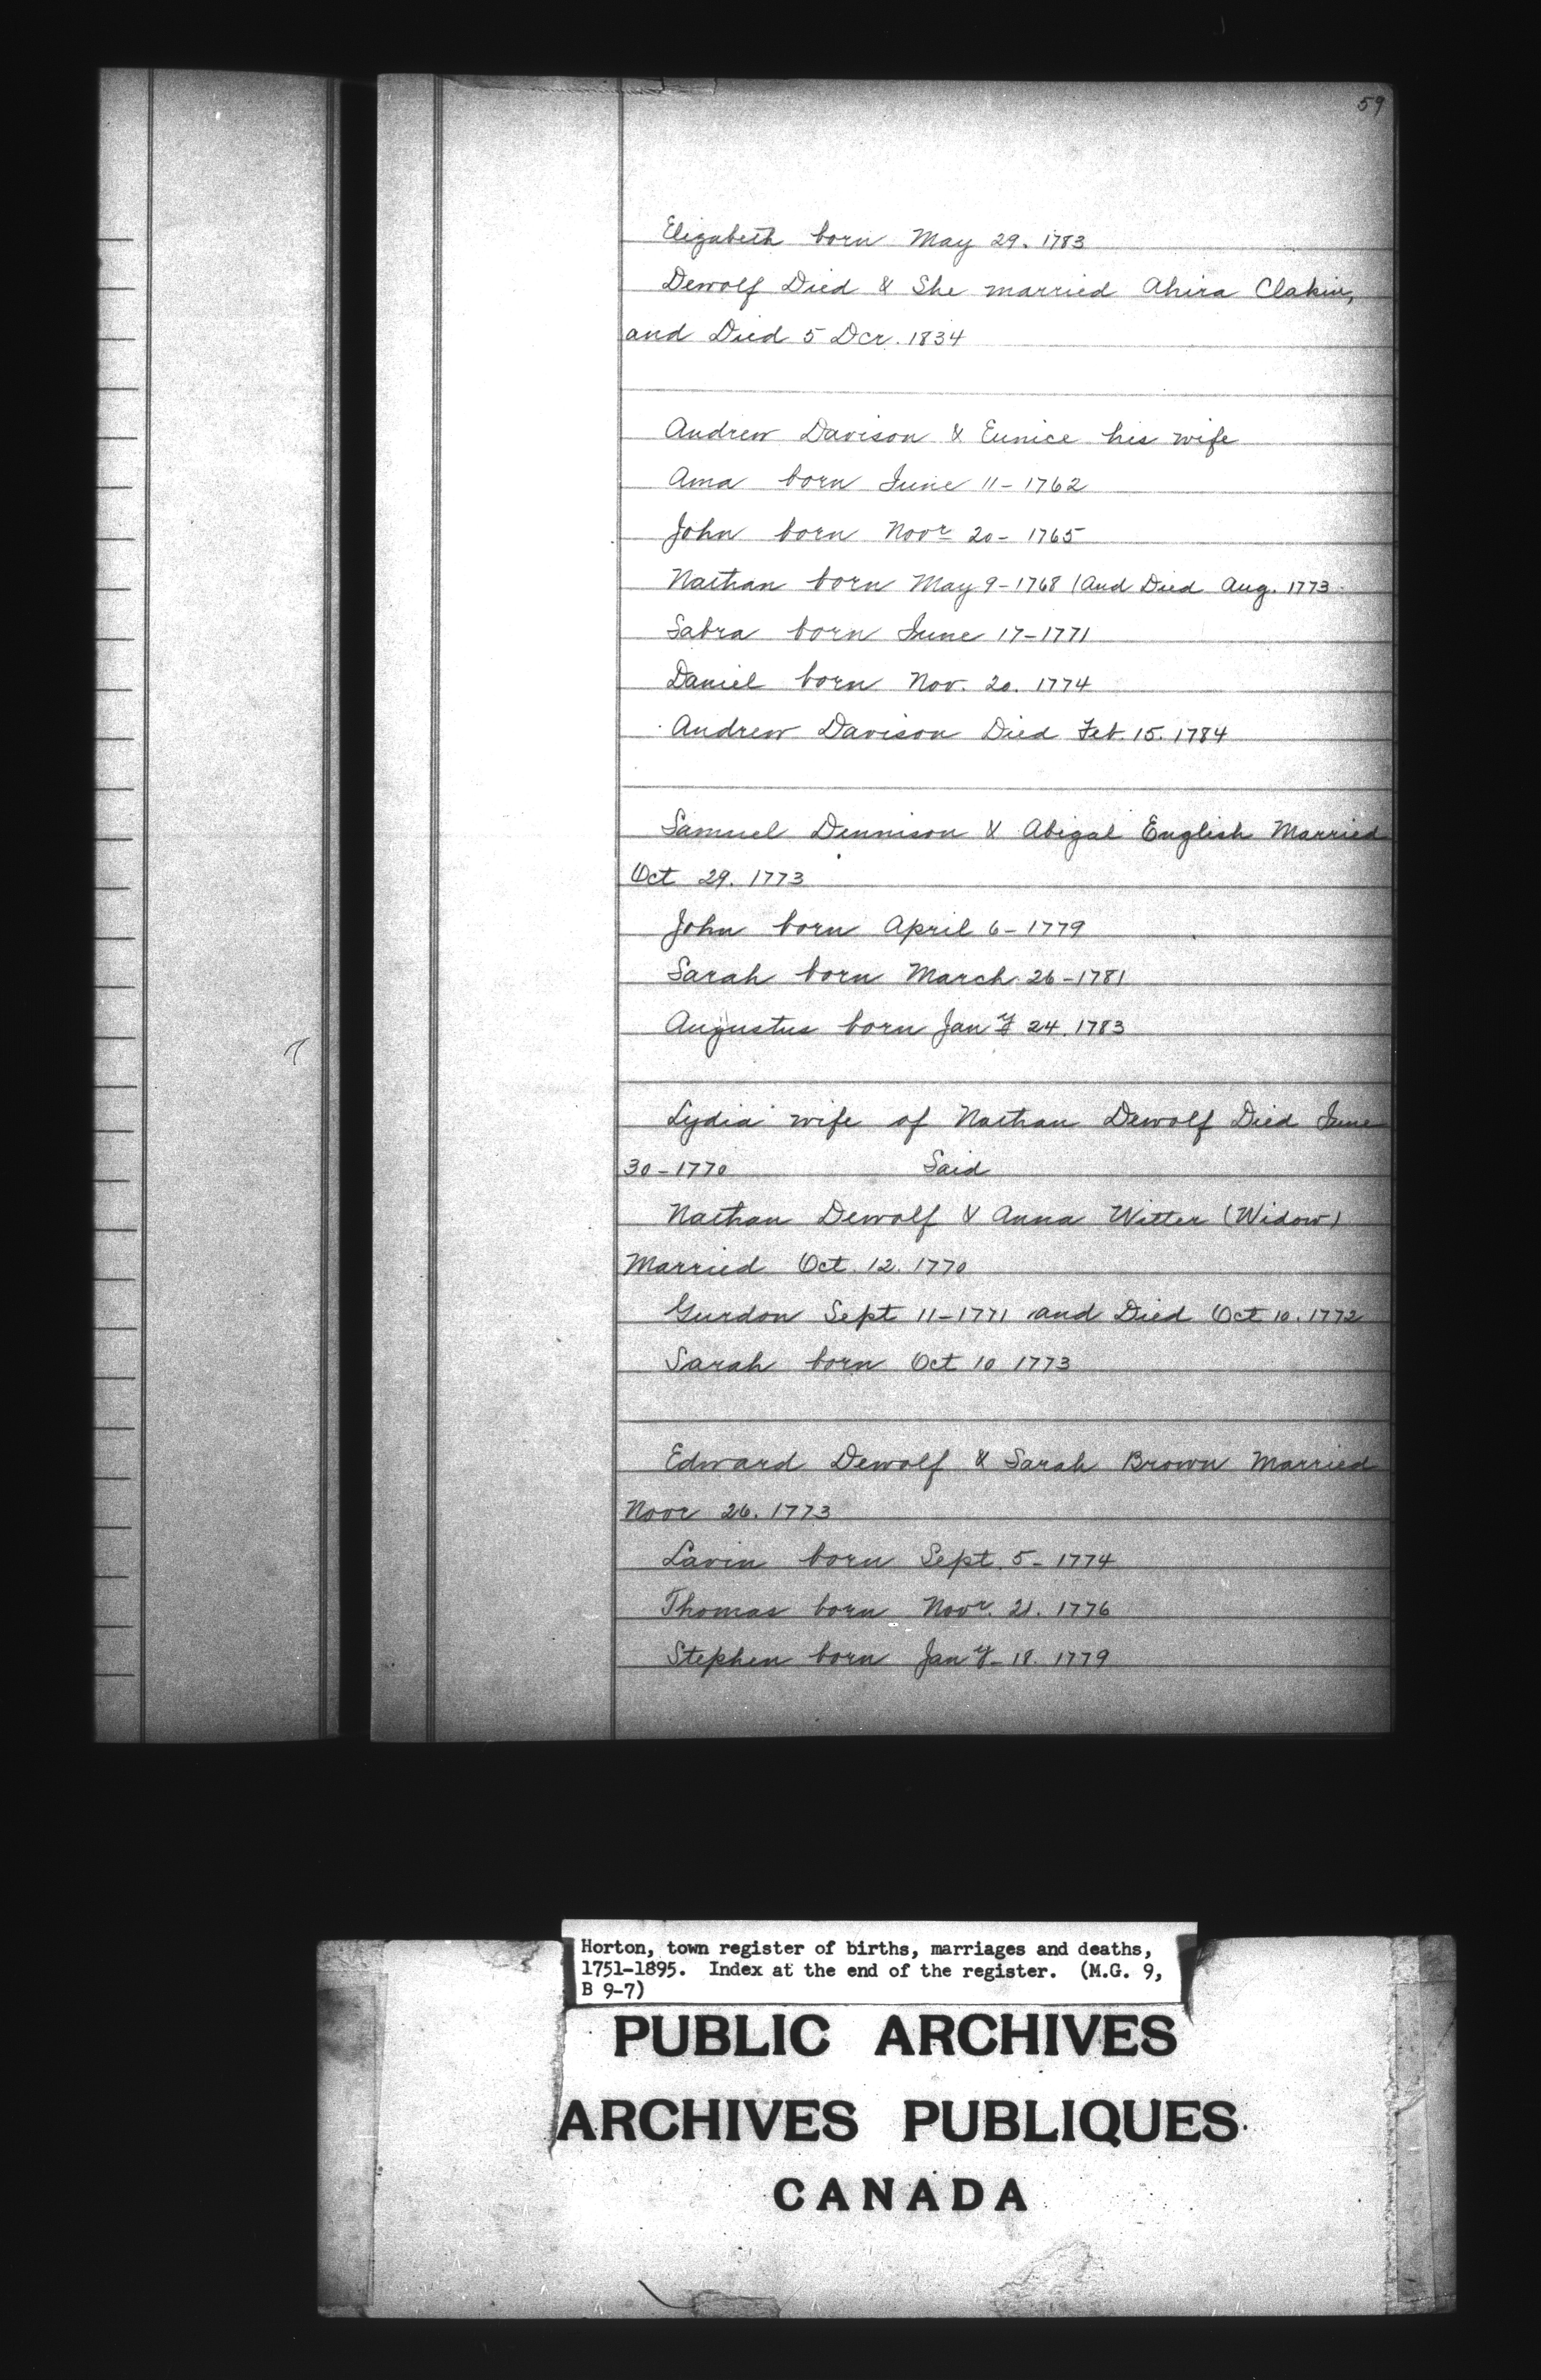 59
Elizabeth born May 29. 1783
Dewolf Died & She married Ahira Clakin,
and Died 5 Dcr. 1834
Andrew Davison & Eunice his wife
Ama born June 11- 1762
John born Novr 20- 1765
Nathan born May 9-1768 (And Died Aug. 1773
Sabra born June 17-1771
Daniel born Nov. 20. 1774
Andrew Davison Died Feb. 15. 1784
Samuel Dennison & Abigal English Married
Oct 29. 1773
John born April 6- 1779
Sarah born March 26-1781
Augustus born Jany 24. 1783
Lydia wife of Nathan Dewolf Died June
30-1770 Said
Nathan Dewolf & Anna Witter (Widow)
Married Oct. 12. 1770
Gurdon Sept 11-1771 and Died Oct 10. 1772
Sarah born Oct 10 1773
Edward Dewolf & Sarah Brown Married
Novr 26. 1773
Lavin born Sept. 5- 1774
Thomas born Novr. 21. 1776
Stephen born Jany- 18. 1779
Horton, town register of births, marriages and deaths,
1751-1895. Index at the end of the register. (M.G. 9,
B 9-7)
PUBLIC ARCHIVES
ARCHIVES PUBLIQUES
CANADA